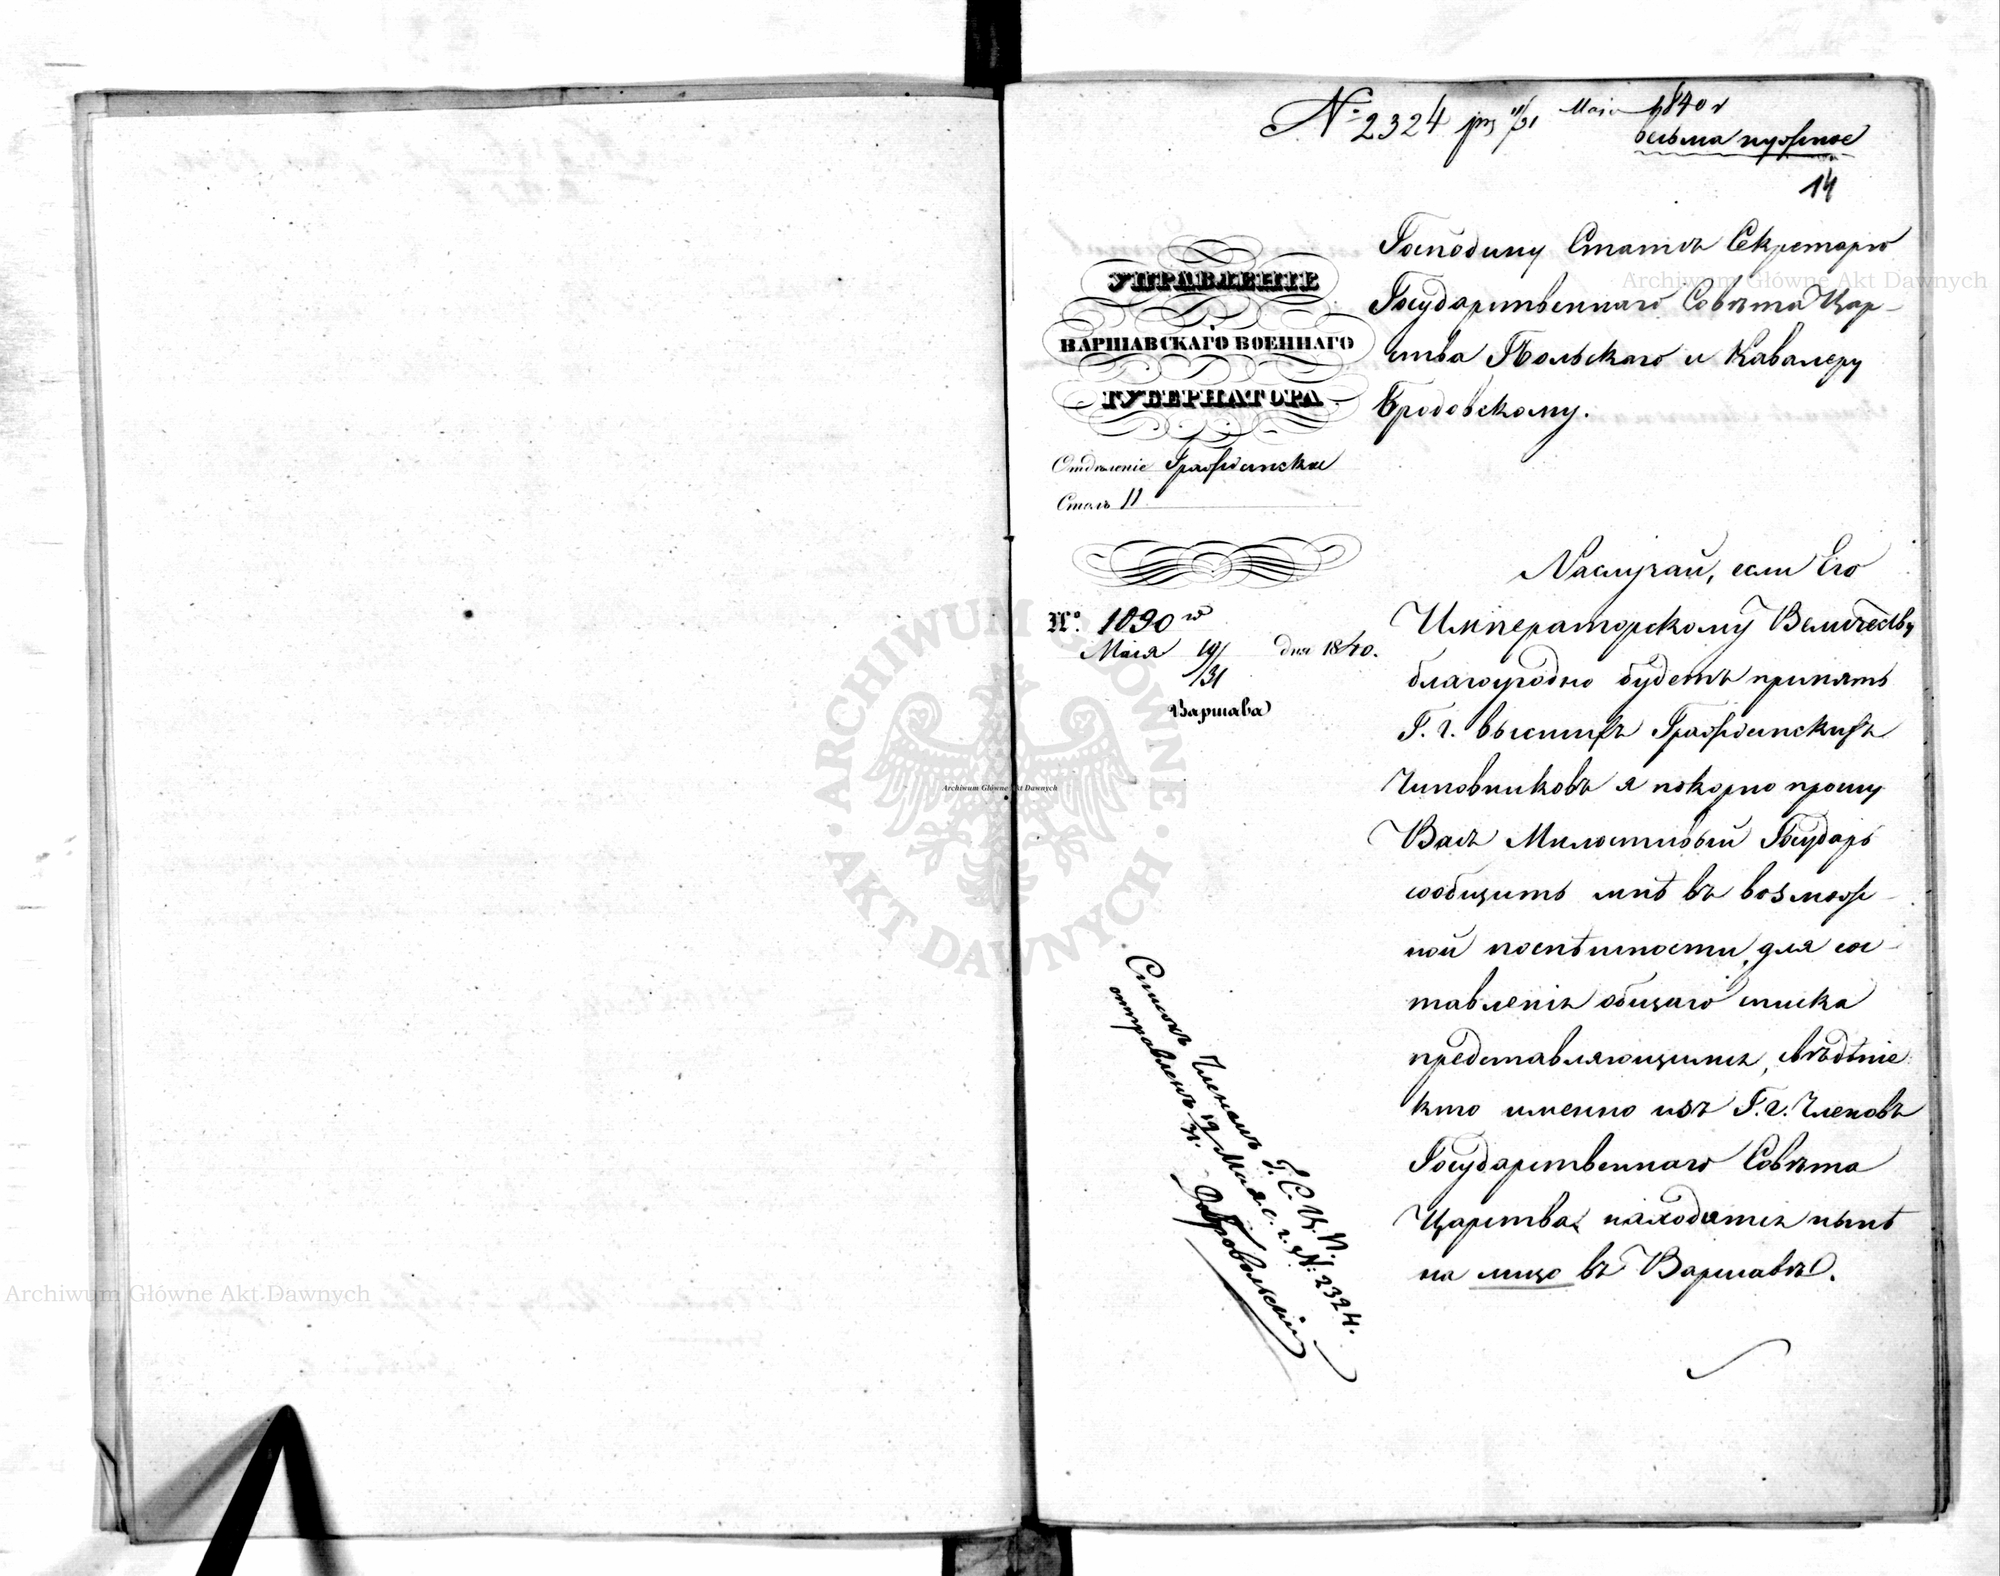 № 2324 prz 19/31 Maja 1840 r
весьма нужное
14
УПРАВЛЕНІЕ
ВАРШАВСКАГО ВОЕННАГО
ГУБЕРНАТОРА
Отдѣленіе Гражданское
Столъ II
№. 1090
Маія 19/31 дня 1840.
Варшава
Господину Статсъ Секретарю
Государственнаго Совѣта Цар-
ства Польскаго и Кавалеру
Бродовскому.
Наслучай, если Его
Императорскому Величеству
благоугодно будетъ принять
Г. г. высшихъ Гражданскихъ
Чиновниковъ я покорно прошу
Васъ Милостивый Государь
сообщить мнѣ въ возмож-
ной поспѣшности, для сос-
тавленія общаго списка
представляющимся, свѣдѣніе
кто именно изъ Г. г. Членовъ
Государственнаго Совѣта
Царства, находятся нынѣ
на лицо въ Варшавѣ.
Списокъ Членамъ Г. С. Ц. П.
отправленъ 19/31 Маія с. г. № 2324.
Archiwum Główne Akt Dawnych
Archiwum Główne Akt Dawnych
Archiwum Główne Akt Dawnych
ARCHIWUM GŁÓWNE AKT DAWNYCH